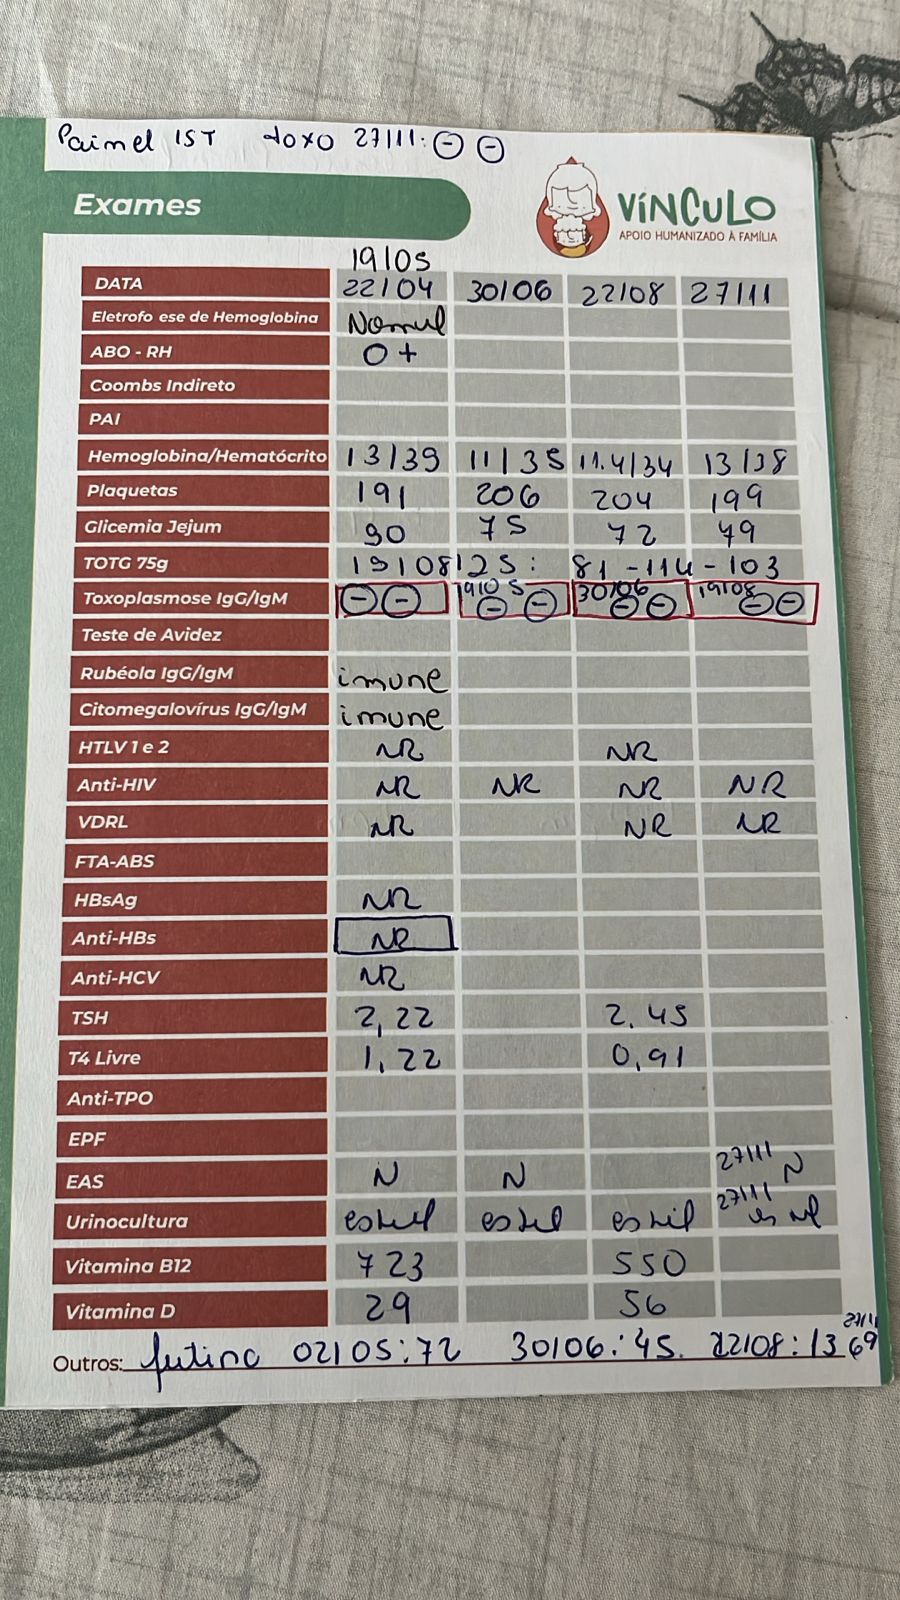 Painel IST toxo 27/11: ⊖ ⊖
Exames
VÍNCULO
APOIO HUMANIZADO À FAMÍLIA
19/05
DATA 22/04 30/06 22/08 27/11
Eletrofo ese de Hemoglobina Normal
ABO - RH O+
Coombs Indireto
PAI
Hemoglobina/Hematócrito 13/39 11/35 11.4/34 13/38
Plaquetas 191 206 204 199
Glicemia Jejum 90 75 72 79
TOTG 75g 19/08/25: 81-114-103
Toxoplasmose IgG/IgM ⊖⊖ 19/05 ⊖ ⊖ 30/06 ⊖⊖ 19/08 ⊖⊖
Teste de Avidez
Rubéola IgG/IgM imune
Citomegalovírus IgG/IgM imune
HTLV 1 e 2 NR NR
Anti-HIV NR NR NR NR
VDRL NR NR NR
FTA-ABS
HBsAg NR
Anti-HBs NR
Anti-HCV NR
TSH 2,22 2.45
T4 Livre 1,22 0,91
Anti-TPO
EPF
EAS N N 27/11 N
Urinocultura estéril estéril estéril 27/11
Vitamina B12 723 550
Vitamina D 29 56
Outros: 02/05:72 30/06:45. 22/08:13 27/11 69